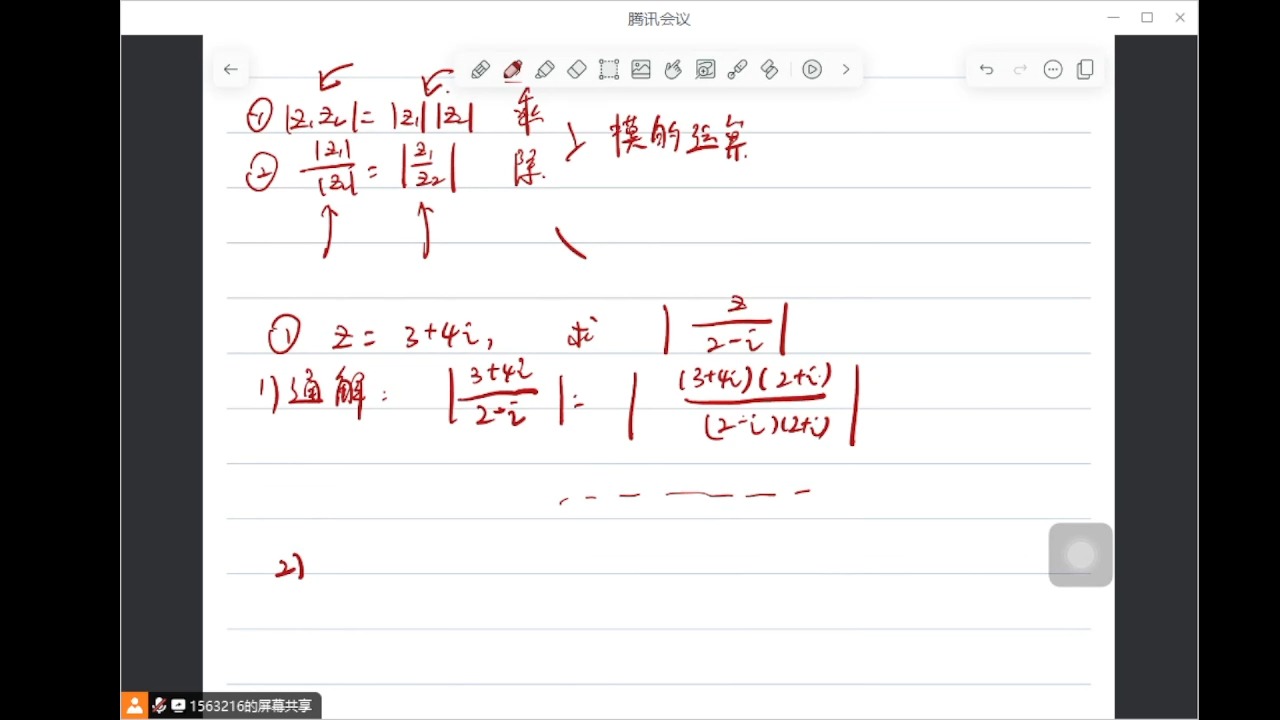 腾讯会议
① |z₁z₂| = |z₁||z₂| 乘
② |z₁|/|z₂| = |z₁/z₂| 除.
} 模的运算
① z = 3+4i, 求 |z/(2-i)|
1) 通解: |(3+4i)/(2-i)| = |(3+4i)(2+i)/(2-i)(2+i)|
2)
1563216的屏幕共享